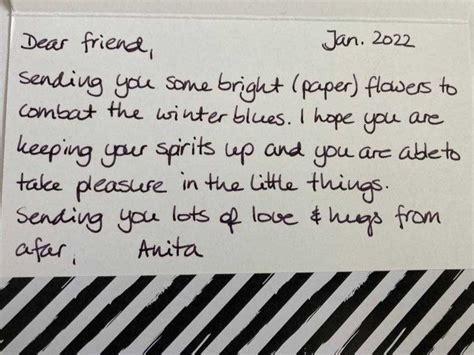 Dear friend, Jan. 2022
Sending you some bright (paper) flowers to
combat the winter blues. I hope you are
keeping your spirits up and you are able to
take pleasure in the little things.
Sending you lots of love & hugs from
afar, Anita